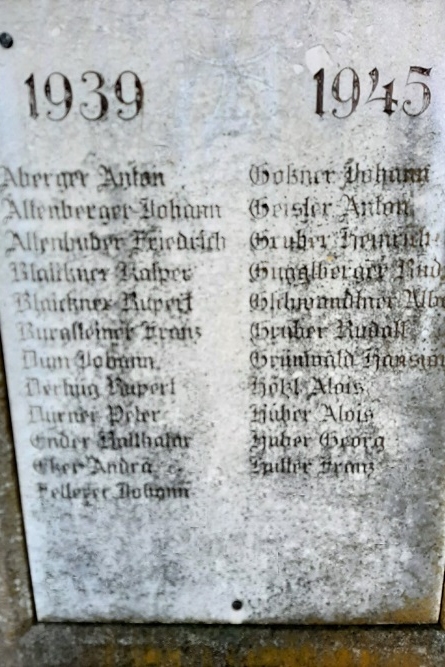 1939
1945
Aberger Anton
Altenberger Johann
Altenhuber Friedrich
Blaickner Kasper
Blaickner Rupert
Burgsteiner Franz
Dum Johann
Rupert
Durner Peter
Ender Balthasar
Eker Andrä
Fellerer Johann
Goßner Johann
Geisler Anton
Gruber Heinrich
Gugglberger
Gschwandtner
Gruber Rudolf
Grünwald
Hölzl Alois
Huber Alois
Huber Georg
Hutter Franz